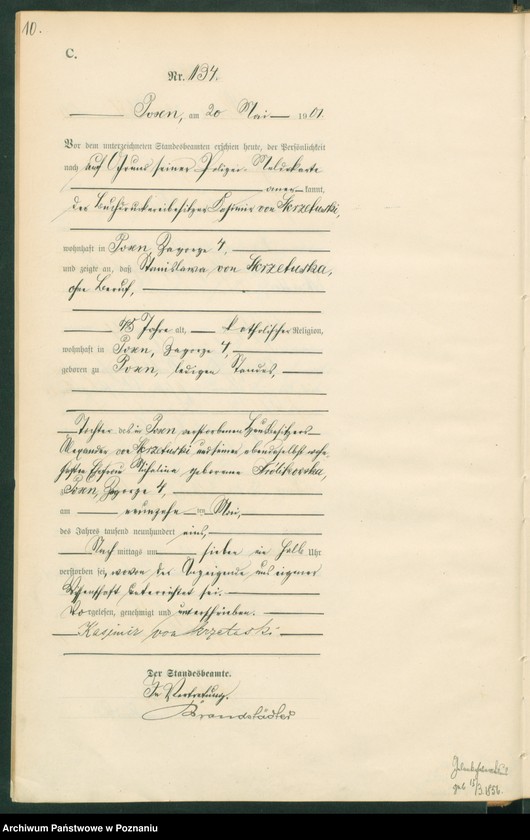 10.
C.
Nr. 1134.
Posen, am 20 Mai 1901.
Vor dem unterzeichneten Standesbeamten erschien heute, der Persönlichkeit
nach auf Grund seiner Polizei-Meldekarte
anerkannt,
der Buchdruckereibesitzer Kasimir von Skrzetuski,
wohnhaft in Posen, Zagorze 4,
und zeigte an, daß Stanislawa von Skrzetuska,
ohne Beruf,
45 Jahre alt, katholischer Religion,
wohnhaft in Posen, Zagorze 4,
geboren zu Posen, ledigen Standes,
Tochter des in Posen verstorbenen Hausbesitzers
Alexander von Skrzetuski und seiner ebendaselbst
Ehefrau Michalina geborenen Królikowska,
zu Posen, Zagorze 4,
am neunzehn ten Mai,
des Jahres tausend neunhundert eins,
Nachmittags um sieben ein halb Uhr
verstorben sei, wovon der Anzeigende aus eigener
Wissenschaft unterrichtet sei.
Vorgelesen, genehmigt und unterschrieben.
Kasimir von Skrzetuski
Der Standesbeamte.
In Vertretung.
Brandstädter
geb. 15/3. 1856.
Archiwum Państwowe w Poznaniu